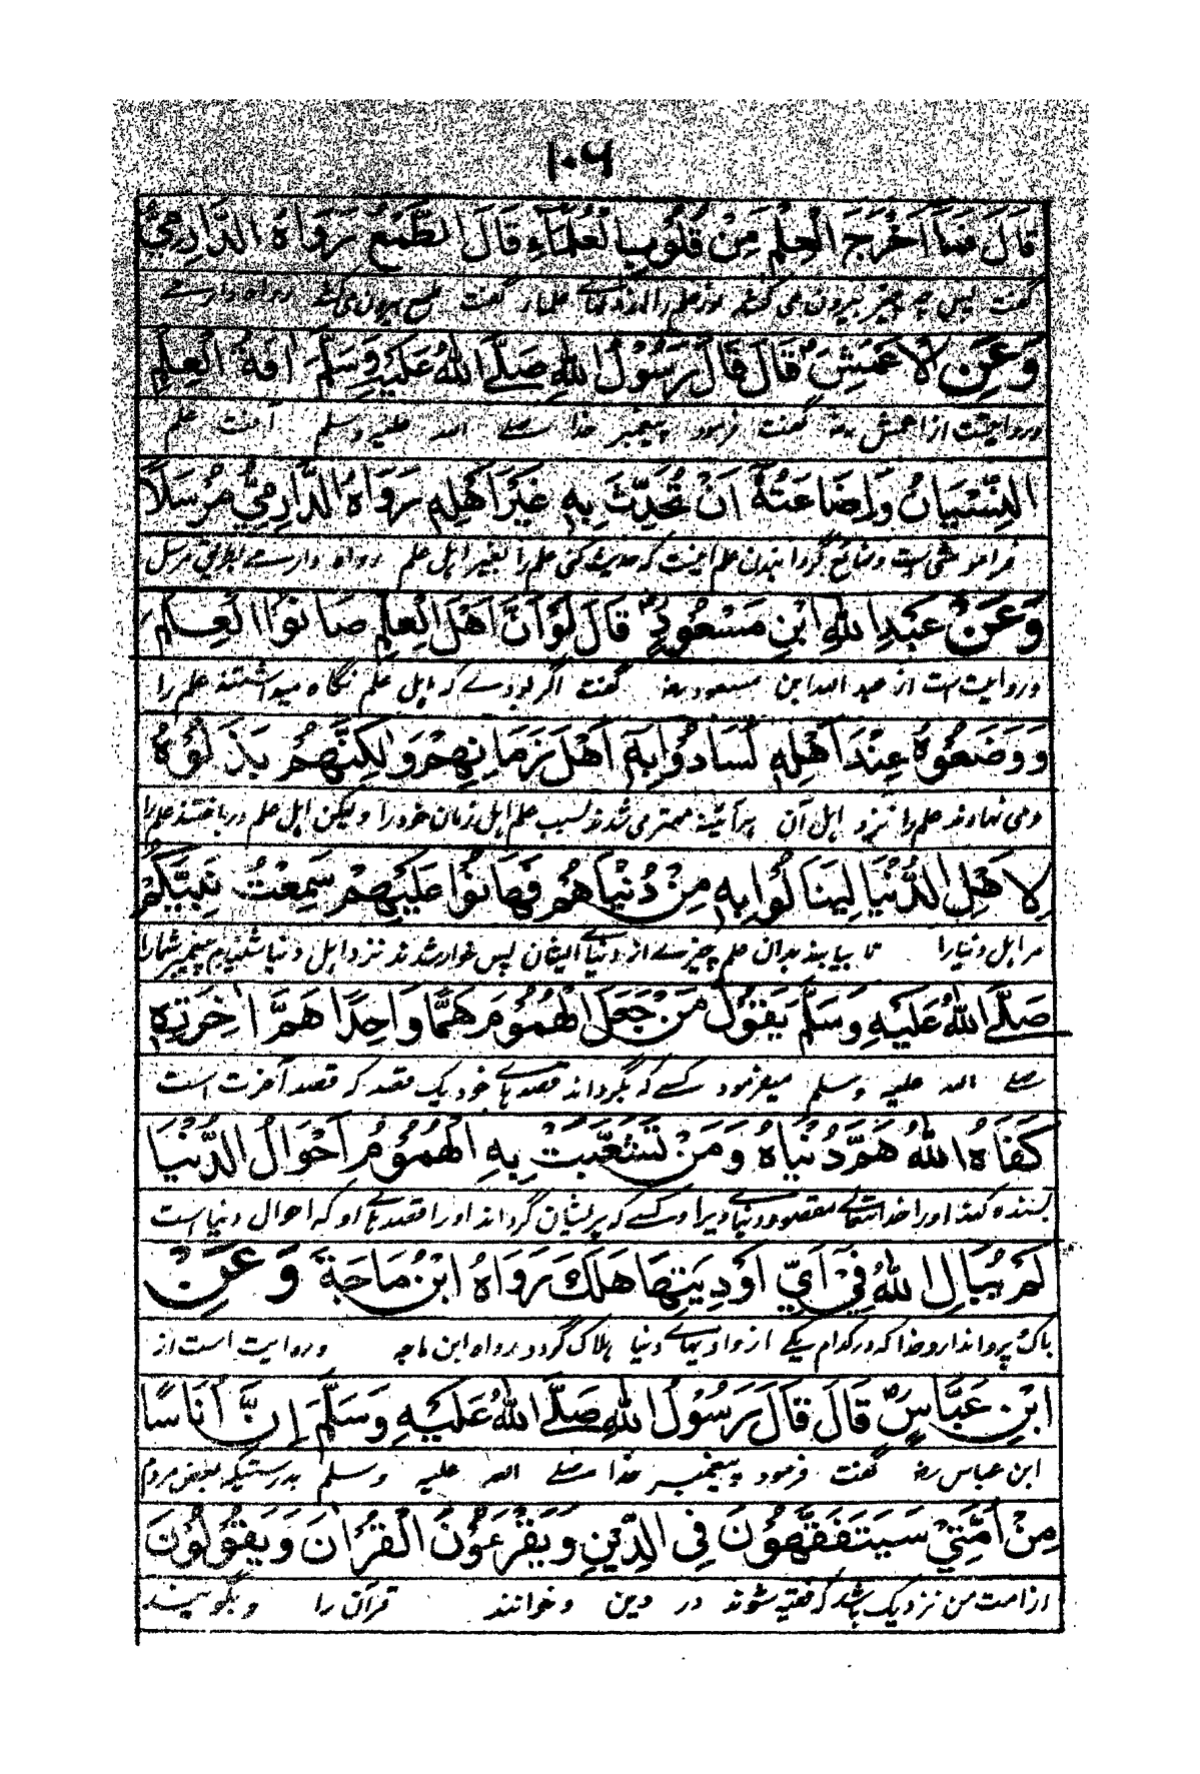 ١٠٦
قَالَ فَمَا اَخْرَجَ الْعِلْمَ مِنْ قُلُوْبِ الْعُلَمَاءِ قَالَ الطَّمَعُ رَوَاهُ الدَّارِمِيُّ
گفت پس چه چیز بیرون می کند نور علم را از دلهای علما گفت طمع بیرون می کند رواه دارمے
وَعَنِ لْاَعْمَشِ قَالَ قَالَ رَسُوْلُ اللّٰهِ صَلَّى اللّٰهُ عَلَيْهِ وَسَلَّمَ اٰفَةُ الْعِلْمِ
وروایتست از اعمش رضہ گفت فرمود پیغمبر خدا صلے اللہ علیہ وسلم آفت علم
النِّسْيَانُ وَاِضَاعَتُهٗ اَنْ تُحَدِّثَ بِهٖ غَيْرَ اَهْلِهٖ رَوَاهُ الدَّارِمِيُّ مُرْسَلًا
فراموشی است وضائع گردانیدن علم اینست که حدیث کنی علم را بغیر اہل علم رواه دارمے بطریق مرسل
وَعَنْ عَبْدِ اللّٰهِ ابْنِ مَسْعُوْدٍ قَالَ لَوْ اَنَّ اَهْلَ الْعِلْمِ صَانُوا الْعِلْمَ
وروایت است از عبد اللہ ابن مسعود رضہ گفت اگر بودے کہ اہل علم نگاه میداشتند علم را
وَوَضَعُوْهُ عِنْدَ اَهْلِهٖ لَسَادُوْا بِهٖ اَهْلَ زَمَانِهِمْ وَلٰكِنَّهُمْ بَذَلُوْهُ
ومی نهادند علم را نزد اہل آن ہرآئینہ مہتر می شدند بسبب علم اہل زمان خود را ولیکن اہل علم درباختند علم را
لِاَهْلِ الدُّنْيَا لِيَنَالُوْا بِهٖ مِنْ دُنْيَاهُمْ فَهَانُوْا عَلَيْهِمْ سَمِعْتُ نَبِيَّكُمْ
مر اہل دنیا را تا بیابند بدان علم چیزے از دنیاے ایشان پس خوار شدند نزد اہل دنیا شنیدم پیغمبر شما را
صَلَّى اللّٰهُ عَلَيْهِ وَسَلَّمَ يَقُوْلُ مَنْ جَعَلَ الْهُمُوْمَ هَمًّا وَاحِدًا هَمَّ اٰخِرَتِهٖ
صلے اللہ علیہ وسلم میفرمود کسے کہ بگرداند قصدہاے خود یک قصد کہ قصد آخرت است
كَفَاهُ اللّٰهُ هَمَّ دُنْيَاهُ وَمَنْ تَشَعَّبَتْ بِهِ الْهُمُوْمُ اَحْوَالُ الدُّنْيَا
بسنده کند او را خدا تعالے مقصود دنیاے ویرا وکسے کہ پریشان گرداند او را قصدہاے او کہ احوال دنیا است
لَمْ يُبَالِ اللّٰهُ فِيْ اَيِّ اَوْدِيَتِهَا هَلَكَ رَوَاهُ ابْنُ مَاجَةَ وَعَنِ
باک وپروا ندارد خدا کہ در کدام یکے از وادیہاے دنیا ہلاک گردد رواه ابن ماجہ وروایت است از
ابْنِ عَبَّاسٍ قَالَ قَالَ رَسُوْلُ اللّٰهِ صَلَّى اللّٰهُ عَلَيْهِ وَسَلَّمَ اِنَّ اُنَاسًا
ابن عباس رضہ گفت فرمود پیغمبر خدا صلے اللہ علیہ وسلم بدرستیکہ بعض مردم
مِنْ اُمَّتِيْ سَيَتَفَقَّهُوْنَ فِى الدِّيْنِ وَيَقْرَءُوْنَ الْقُرْاٰنَ وَيَقُوْلُوْنَ
از امت من نزدیک باشد کہ فقیہ شوند در دین وخوانند قرآن را وبگویند